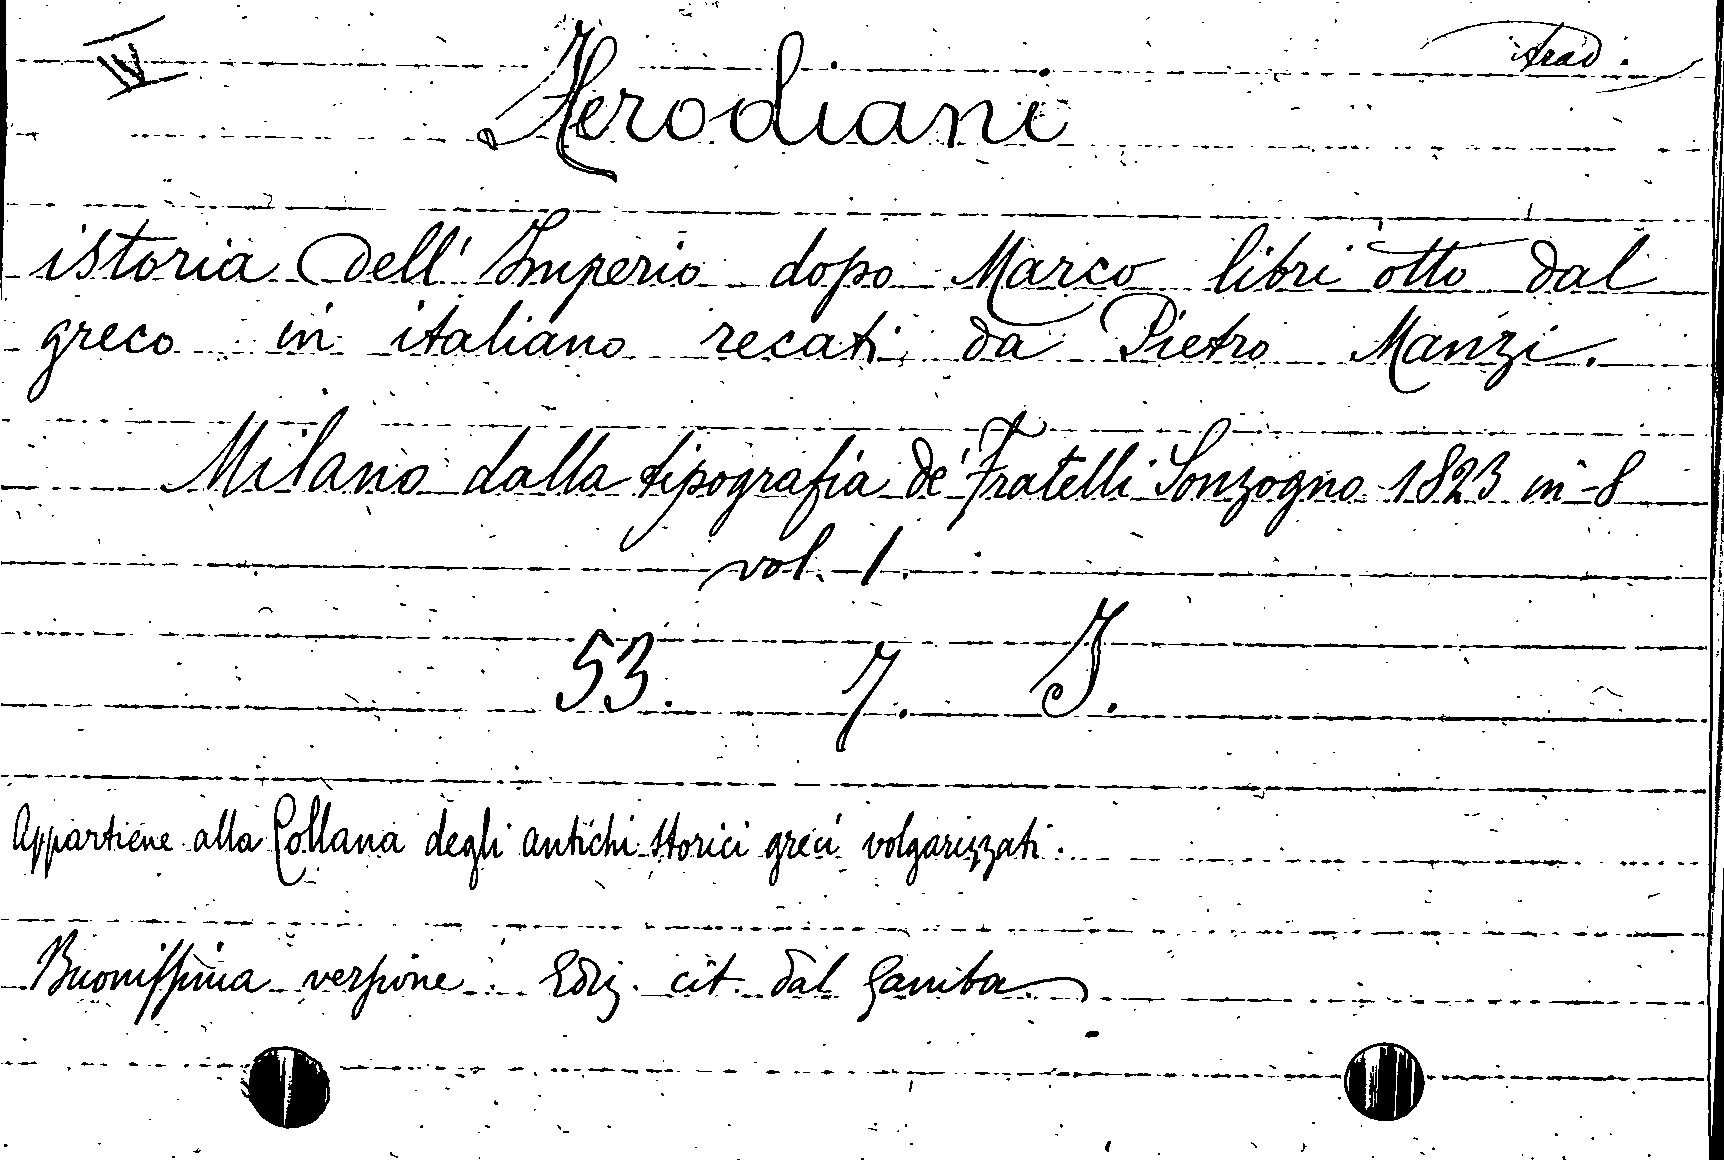 IV
Trad.
Herodiani
istoria dell' Imperio dopo Marco libri otto dal
greco in italiano recati da Pietro Manzi.
Milano dalla tipografia de' Fratelli Sonzogno 1823 in-8
vol. 1.
53. 7. I.
Appartiene alla Collana degli antichi storici greci volgarizzati.
Buonissima versione. Ediz. cit. dal Gamba